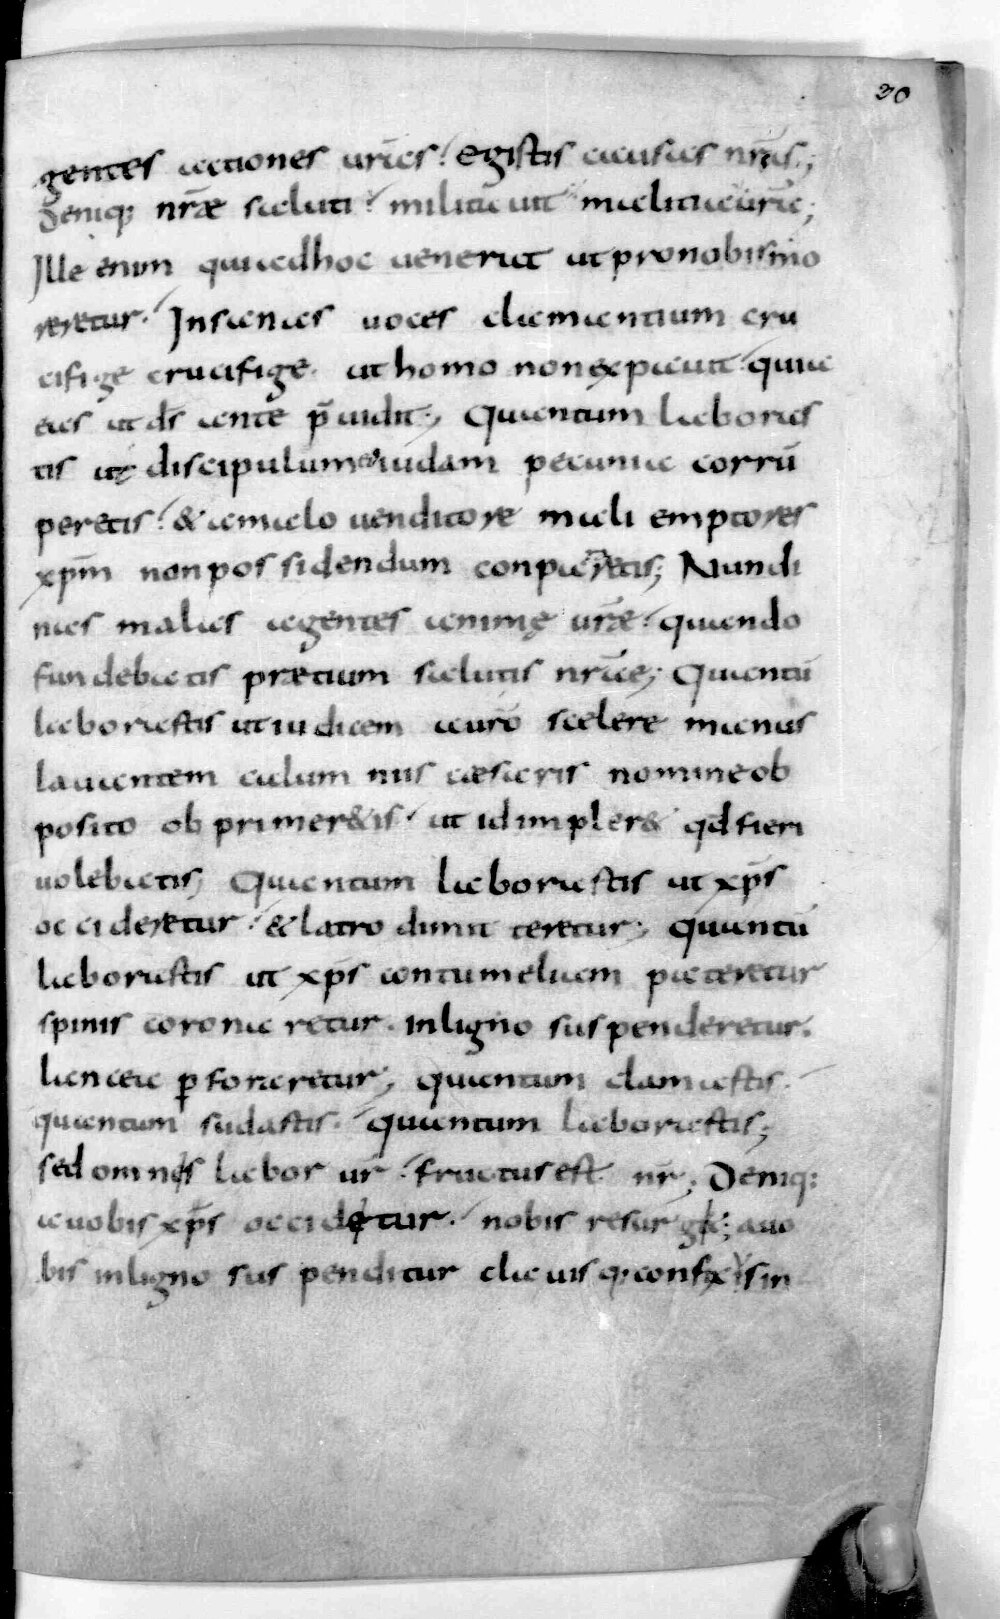 30
gentes actiones ur̄as. Egistis causas nr̄as;
Deniq; nr̄æ saluti militauit malitia ur̄a;
Ille enim qui adhoc uenerat ut pronobis mo
reretur. Insanas uoces clamantium cru
cifige crucifige. ut homo non expauit quia
eas ut ds̄ ante p̄uidit; Quantum labores
tis ut discipulum iudam pecunia corrū
peretis. & amalo uenditore mali emptores
xp̄m non possidendum conparetis; Nundi
nas malas agentes animę ur̄æ. quando
fundebatis prætium salutis nr̄æ; Quantū
laborastis ut iudicem auro scelere manus
lauantem calumniis cæsaris nomine ob
posito obprimer&is. ut id impler& qd̄ fieri
uolebatis; Quantum laborastis ut xp̄s
occideretur. & latro dimitteretur; Quantū
laborastis ut xp̄s contumeliam pateretur
spinis coronaretur. inligno suspenderetur.
lancea ꝑforaretur; quantum clamastis.
quantum sudastis. quantum laborastis;
sed omnis labor ur̄. fructus est nr̄; Deniq:
auobis xp̄s occiditur. nobis resurgit; auo
bis inligno suspenditur clauisq: confixis in